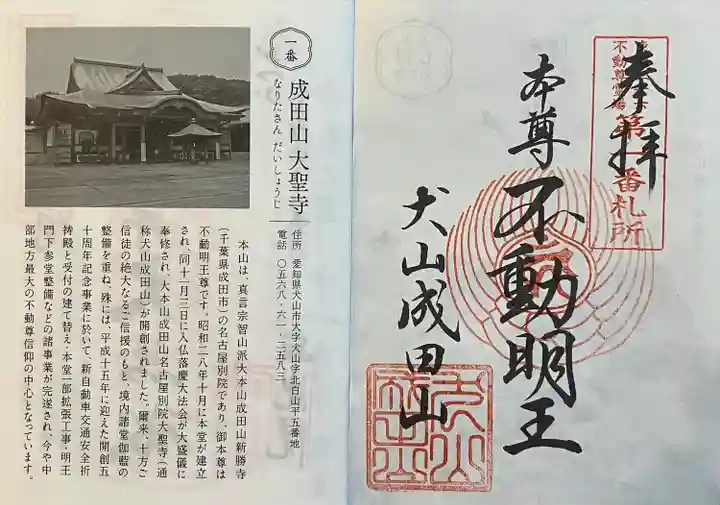 奉拝
東海三十六
不動尊霊場
第一番札所
本尊
不動明王
犬山成田山
一番
成田山 大聖寺
なりたさん だいしょうじ
住所 愛知県犬山市大字犬山字北白山平五番地
電話 〇五六八‐六一‐二五八三
本山は、真言宗智山派大本山成田山新勝寺
(千葉県成田市)の名古屋別院であり、御本尊は
不動明王尊です。昭和二八年十月に本堂が建立
され、同十一月三日に入仏落慶大法会が大盛儀に
奉修され、大本山成田山名古屋別院大聖寺(通
称犬山成田山)が開創されました。爾来、十方ご
信徒の絶大なるご信援のもと、境内諸堂伽藍の
整備を重ね、殊には、平成十五年に迎えた開創五
十周年記念事業に於いて、新自動車交通安全祈
祷殿と受付の建て替え・本堂一部拡張工事・明王
門下参堂整備などの諸事業が完遂され、今や中
部地方最大の不動尊信仰の中心となっています。